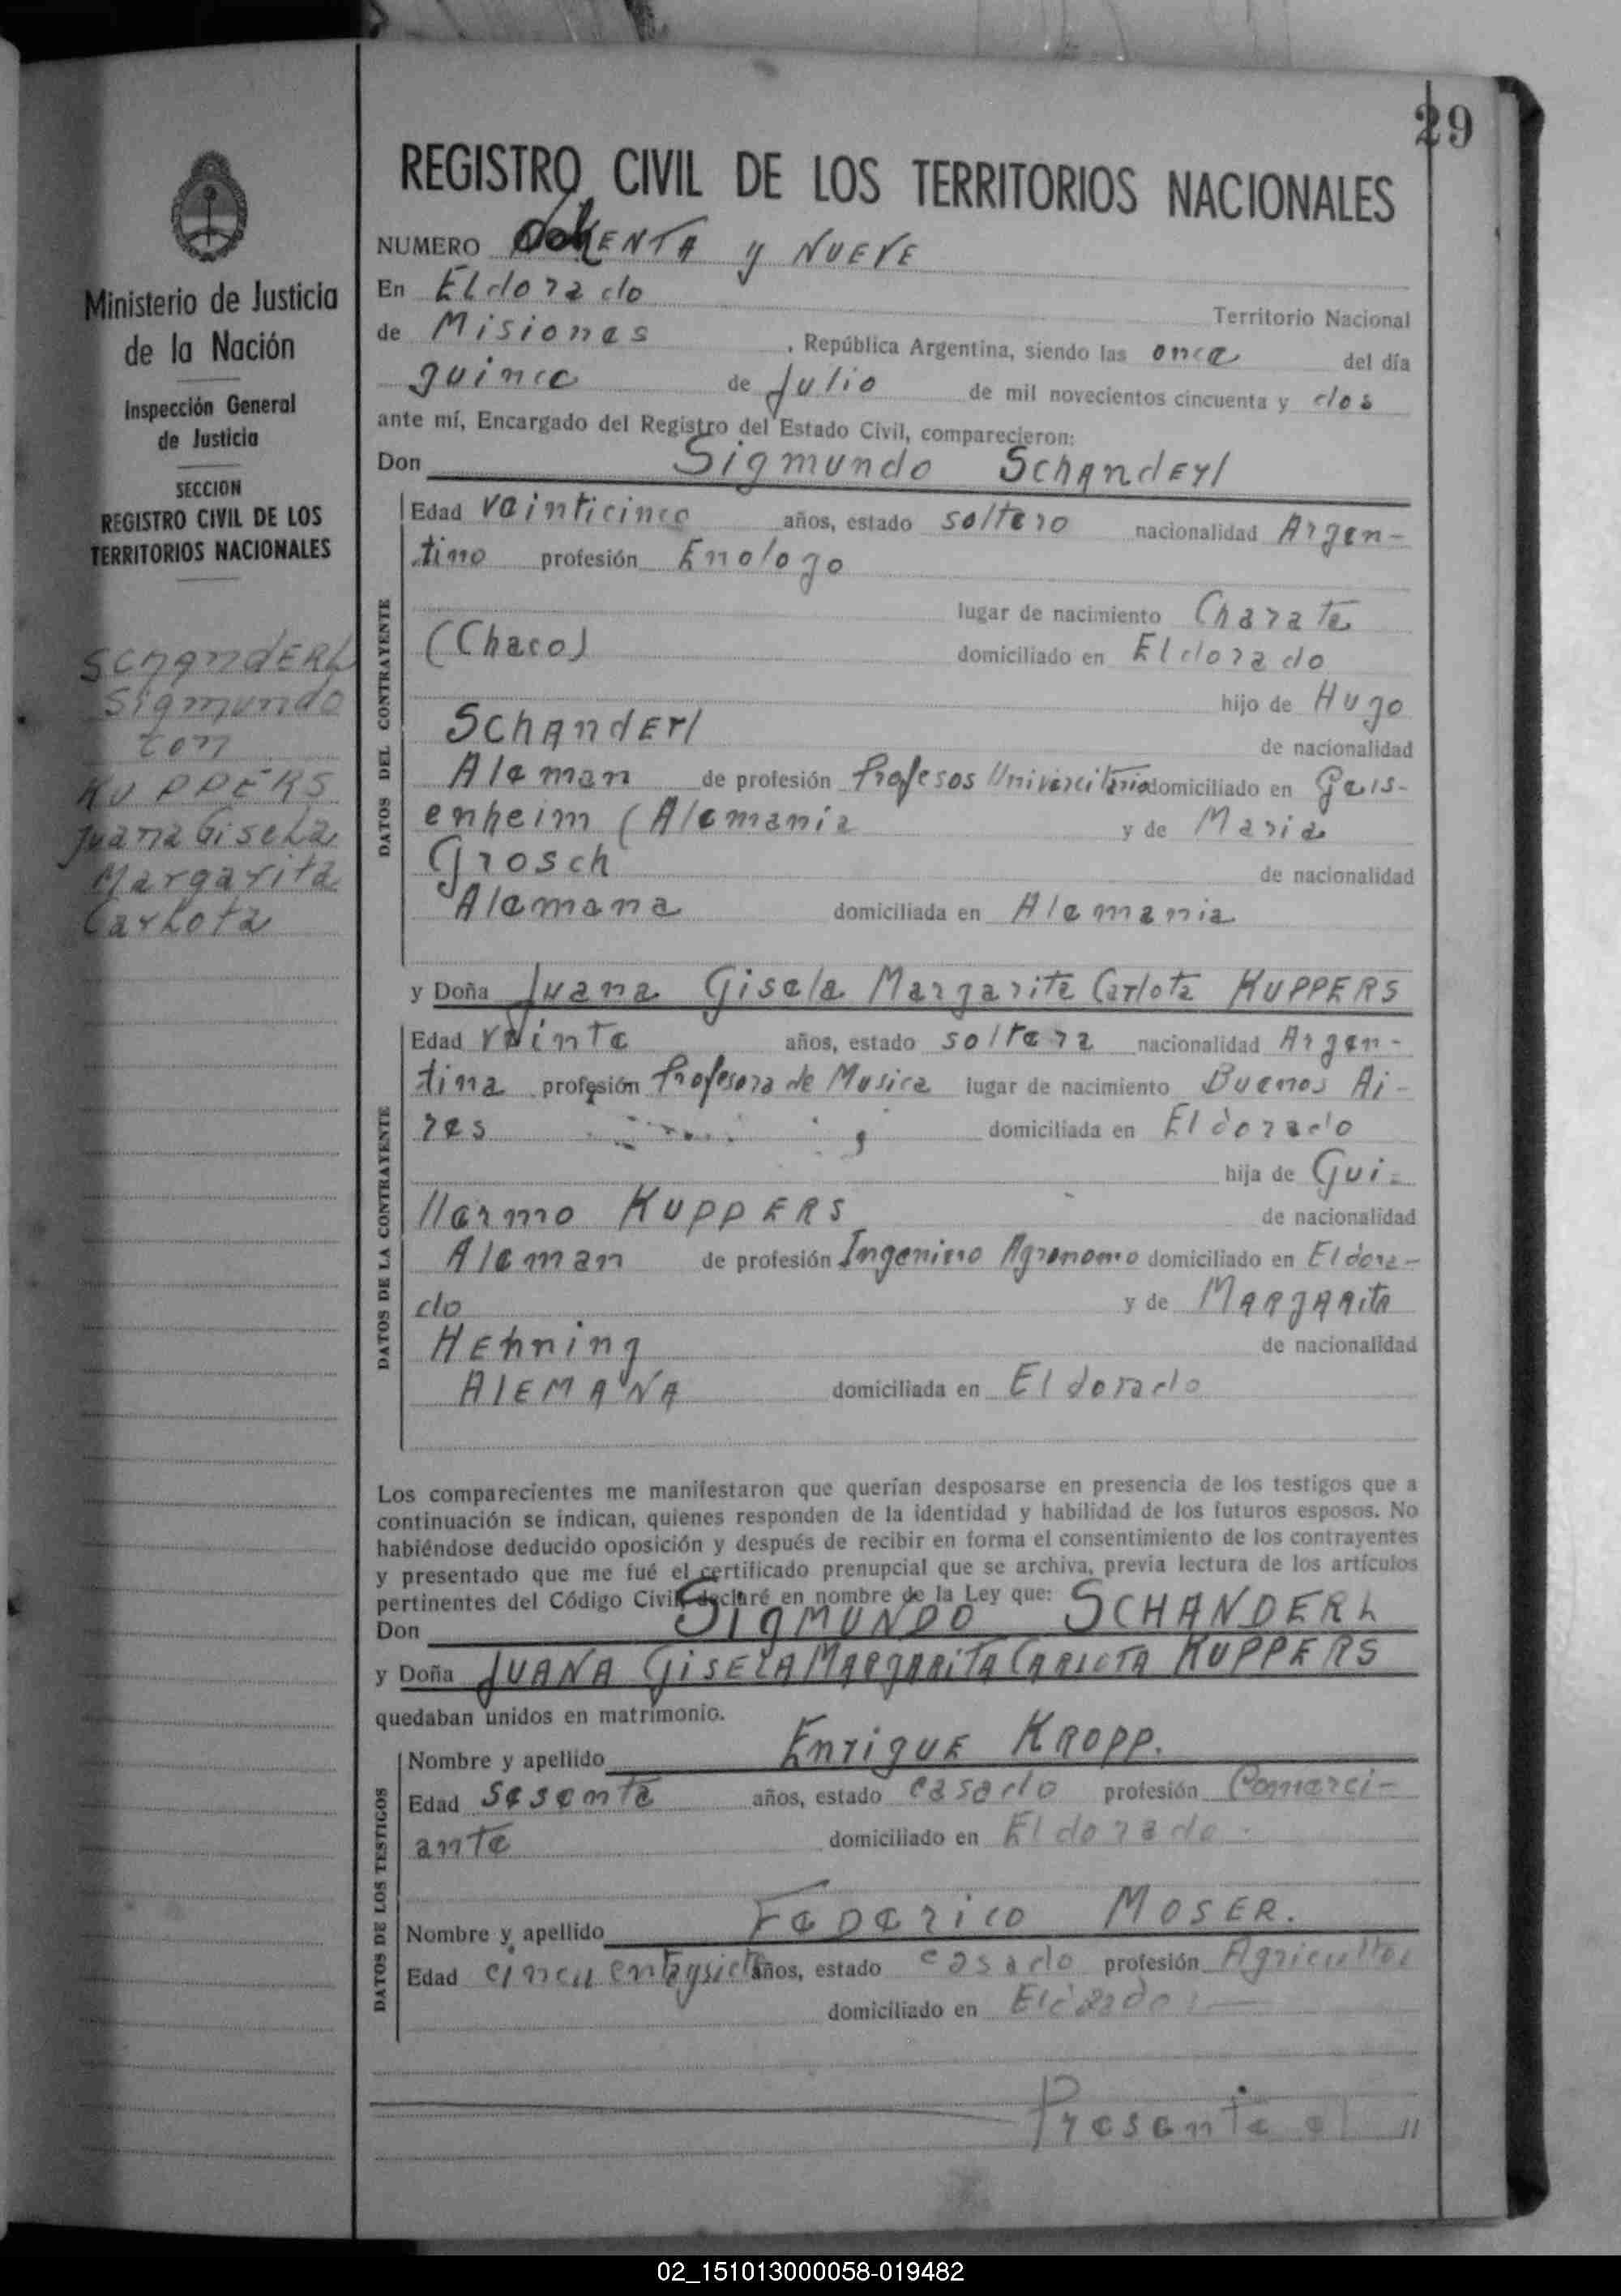 29
REGISTRO CIVIL DE LOS TERRITORIOS NACIONALES
Ministerio de Justicia
de la Nación
Inspección General
de Justicia
SECCION
REGISTRO CIVIL DE LOS
TERRITORIOS NACIONALES
SCHANDERL
Sigmundo
con
KUPPERS
Juana Gisela
Margarita
Carlota
NUMERO y NUEVE
En Eldorado
Territorio Nacional
de Misiones, República Argentina, siendo las once del día
quince de Julio de mil novecientos cincuenta y dos
ante mí, Encargado del Registro del Estado Civil, comparecieron:
Don Sigmundo Schanderl
DATOS DEL CONTRAYENTE
Edad veinticinco años, estado soltero nacionalidad Argen-
tino profesión Enologo
lugar de nacimiento Charata
(Chaco) domiciliado en Eldorado
hijo de Hugo
Schanderl de nacionalidad
Aleman de profesión Profesos Universitario domiciliado en Geis-
enheim (Alemania y de Maria
Grosch de nacionalidad
Alemana domiciliada en Alemania
y Doña Juana Gisela Margarita Carlota KUPPERS
DATOS DE LA CONTRAYENTE
Edad veinte años, estado soltera nacionalidad Argen-
tina profesión Profesora de Musica lugar de nacimiento Buenos Ai-
res domiciliada en Eldorado
hija de Gui-
llermo KUPPERS de nacionalidad
Aleman de profesión Ingeniero Agronomo domiciliado en Eldora-
do y de MARGARITA
Henning de nacionalidad
ALEMANA domiciliada en Eldorado
Los comparecientes me manifestaron que querían desposarse en presencia de los testigos que a
continuación se indican, quienes responden de la identidad y habilidad de los futuros esposos. No
habiéndose deducido oposición y después de recibir en forma el consentimiento de los contrayentes
y presentado que me fué el certificado prenupcial que se archiva, previa lectura de los artículos
pertinentes del Código Civil, declaré en nombre de la Ley que:
Don SIGMUNDO SCHANDERL
y Doña JUANA GISELA MARGARITA CARLOTA KUPPERS
quedaban unidos en matrimonio.
DATOS DE LOS TESTIGOS
Nombre y apellido Enrique KROPP.
Edad Sesenta años, estado casado profesión Comerci-
ante domiciliado en Eldorado.
Nombre y apellido Federico MOSER.
Edad cincuentaysiete años, estado casado profesión Agricultor
domiciliado en Eldorado
Presente el //
02_151013000058-019482